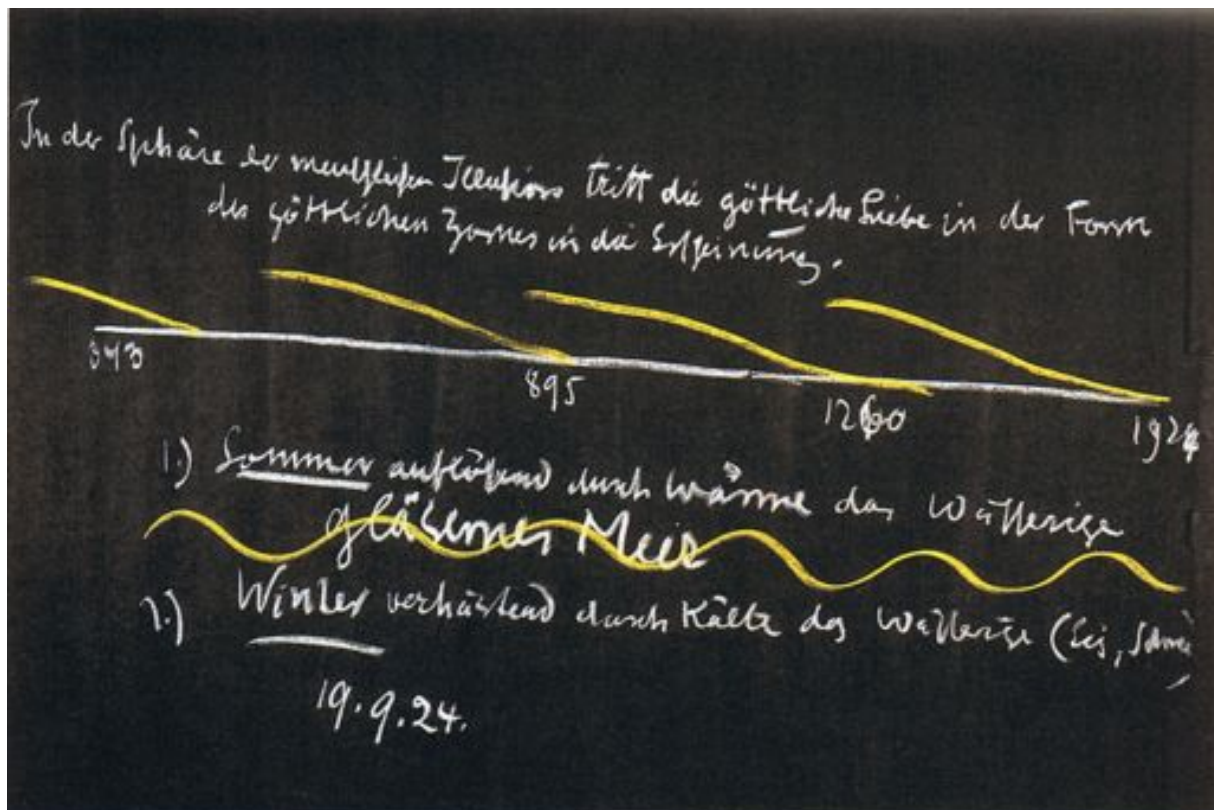 In der Sphäre der menschlichen Illusions tritt die göttliche Liebe in der Form
des göttlichen Zornes in die Erscheinung.
895
1260
1924
1.) Sommer auflösend durch Wärme das Wässerige
gläsernes Meer
2.) Winter verhärtend durch Kälte das Wässerige (Eis, Schnee)
19.9.24.